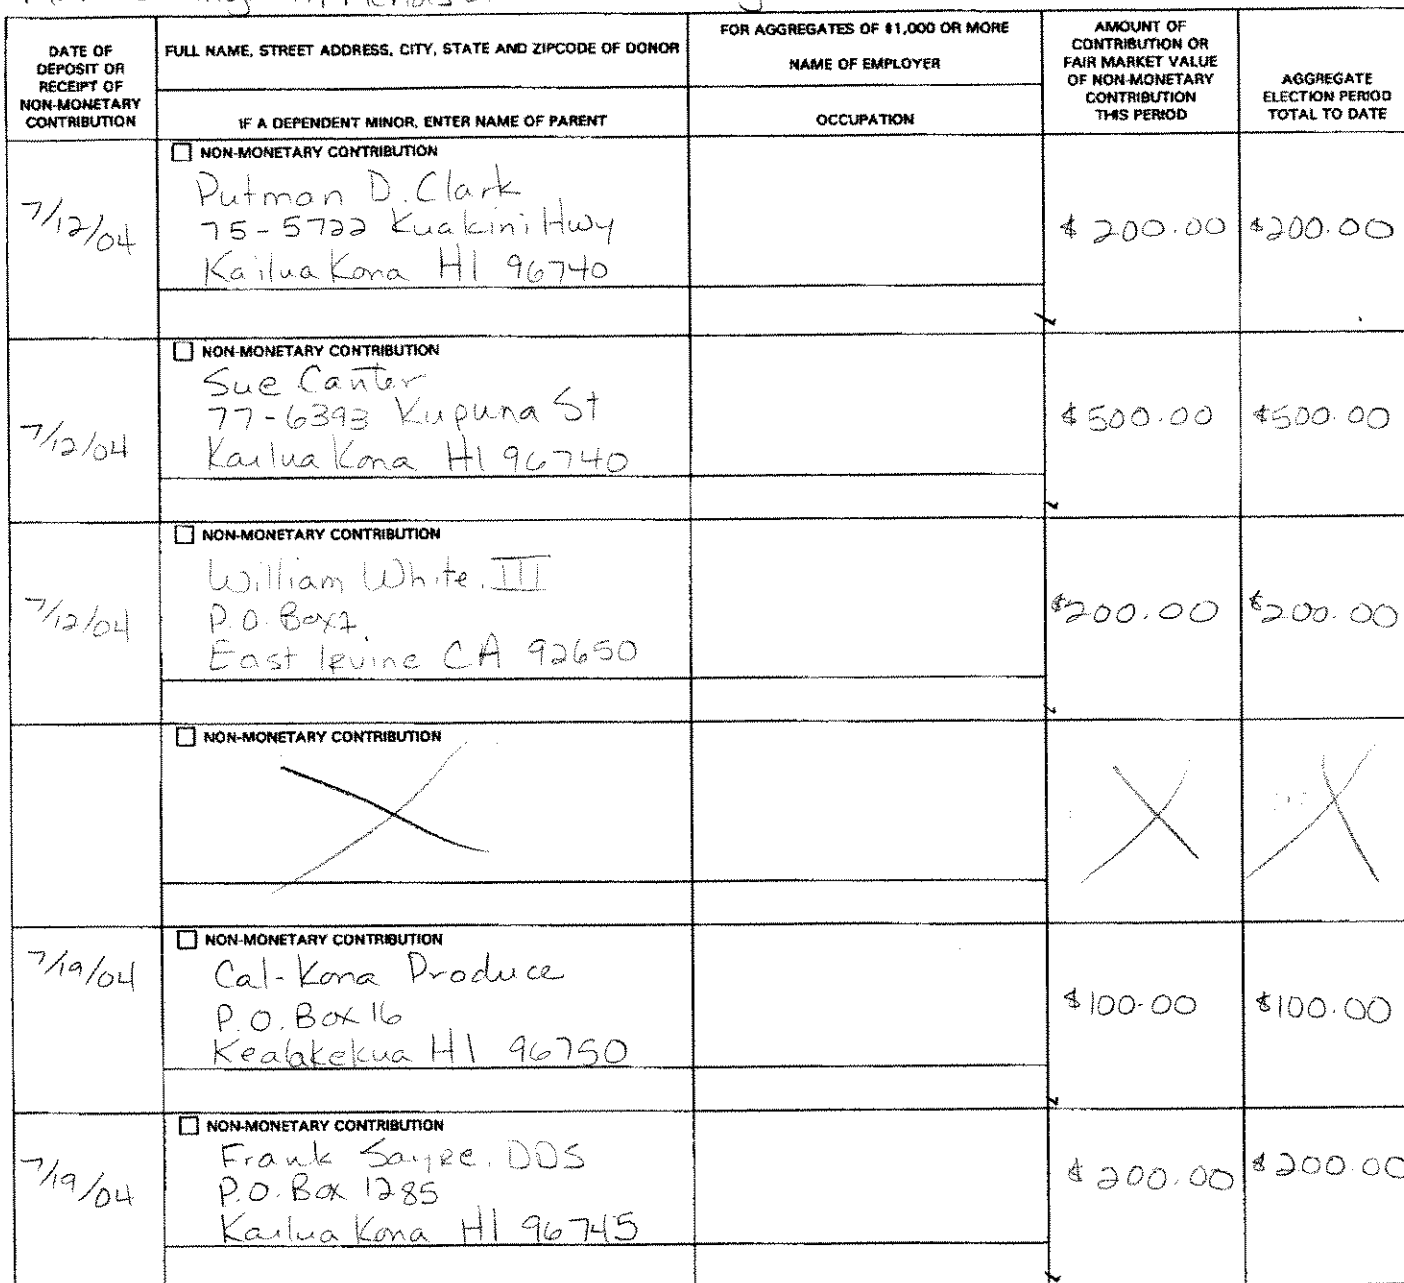 DATE OF DEPOSIT OR RECEIPT OF NON-MONETARY CONTRIBUTION
FULL NAME, STREET ADDRESS, CITY, STATE AND ZIPCODE OF DONOR
IF A DEPENDENT MINOR, ENTER NAME OF PARENT
FOR AGGREGATES OF $1,000 OR MORE
NAME OF EMPLOYER
OCCUPATION
AMOUNT OF CONTRIBUTION OR FAIR MARKET VALUE OF NON-MONETARY CONTRIBUTION THIS PERIOD
AGGREGATE ELECTION PERIOD TOTAL TO DATE
NON-MONETARY CONTRIBUTION
7/12/04
Putman D. Clark
75-5722 Kuakini Hwy
Kailua Kona HI 96740
$200.00 $200.00
NON-MONETARY CONTRIBUTION
7/12/04
Sue Canter
77-6393 Kupuna St
Kailua Kona HI 96740
$500.00 $500.00
NON-MONETARY CONTRIBUTION
7/12/04
William White. III
P.O. Box
East Irvine CA 92650
$200.00 $200.00
NON-MONETARY CONTRIBUTION
NON-MONETARY CONTRIBUTION
7/19/04
Cal-Kona Produce
P.O. Box 16
Kealakekua HI 96750
$100.00 $100.00
NON-MONETARY CONTRIBUTION
7/19/04
Frank Sayre. DDS
P.O. Box 1285
Kailua Kona HI 96745
$200.00 $200.00